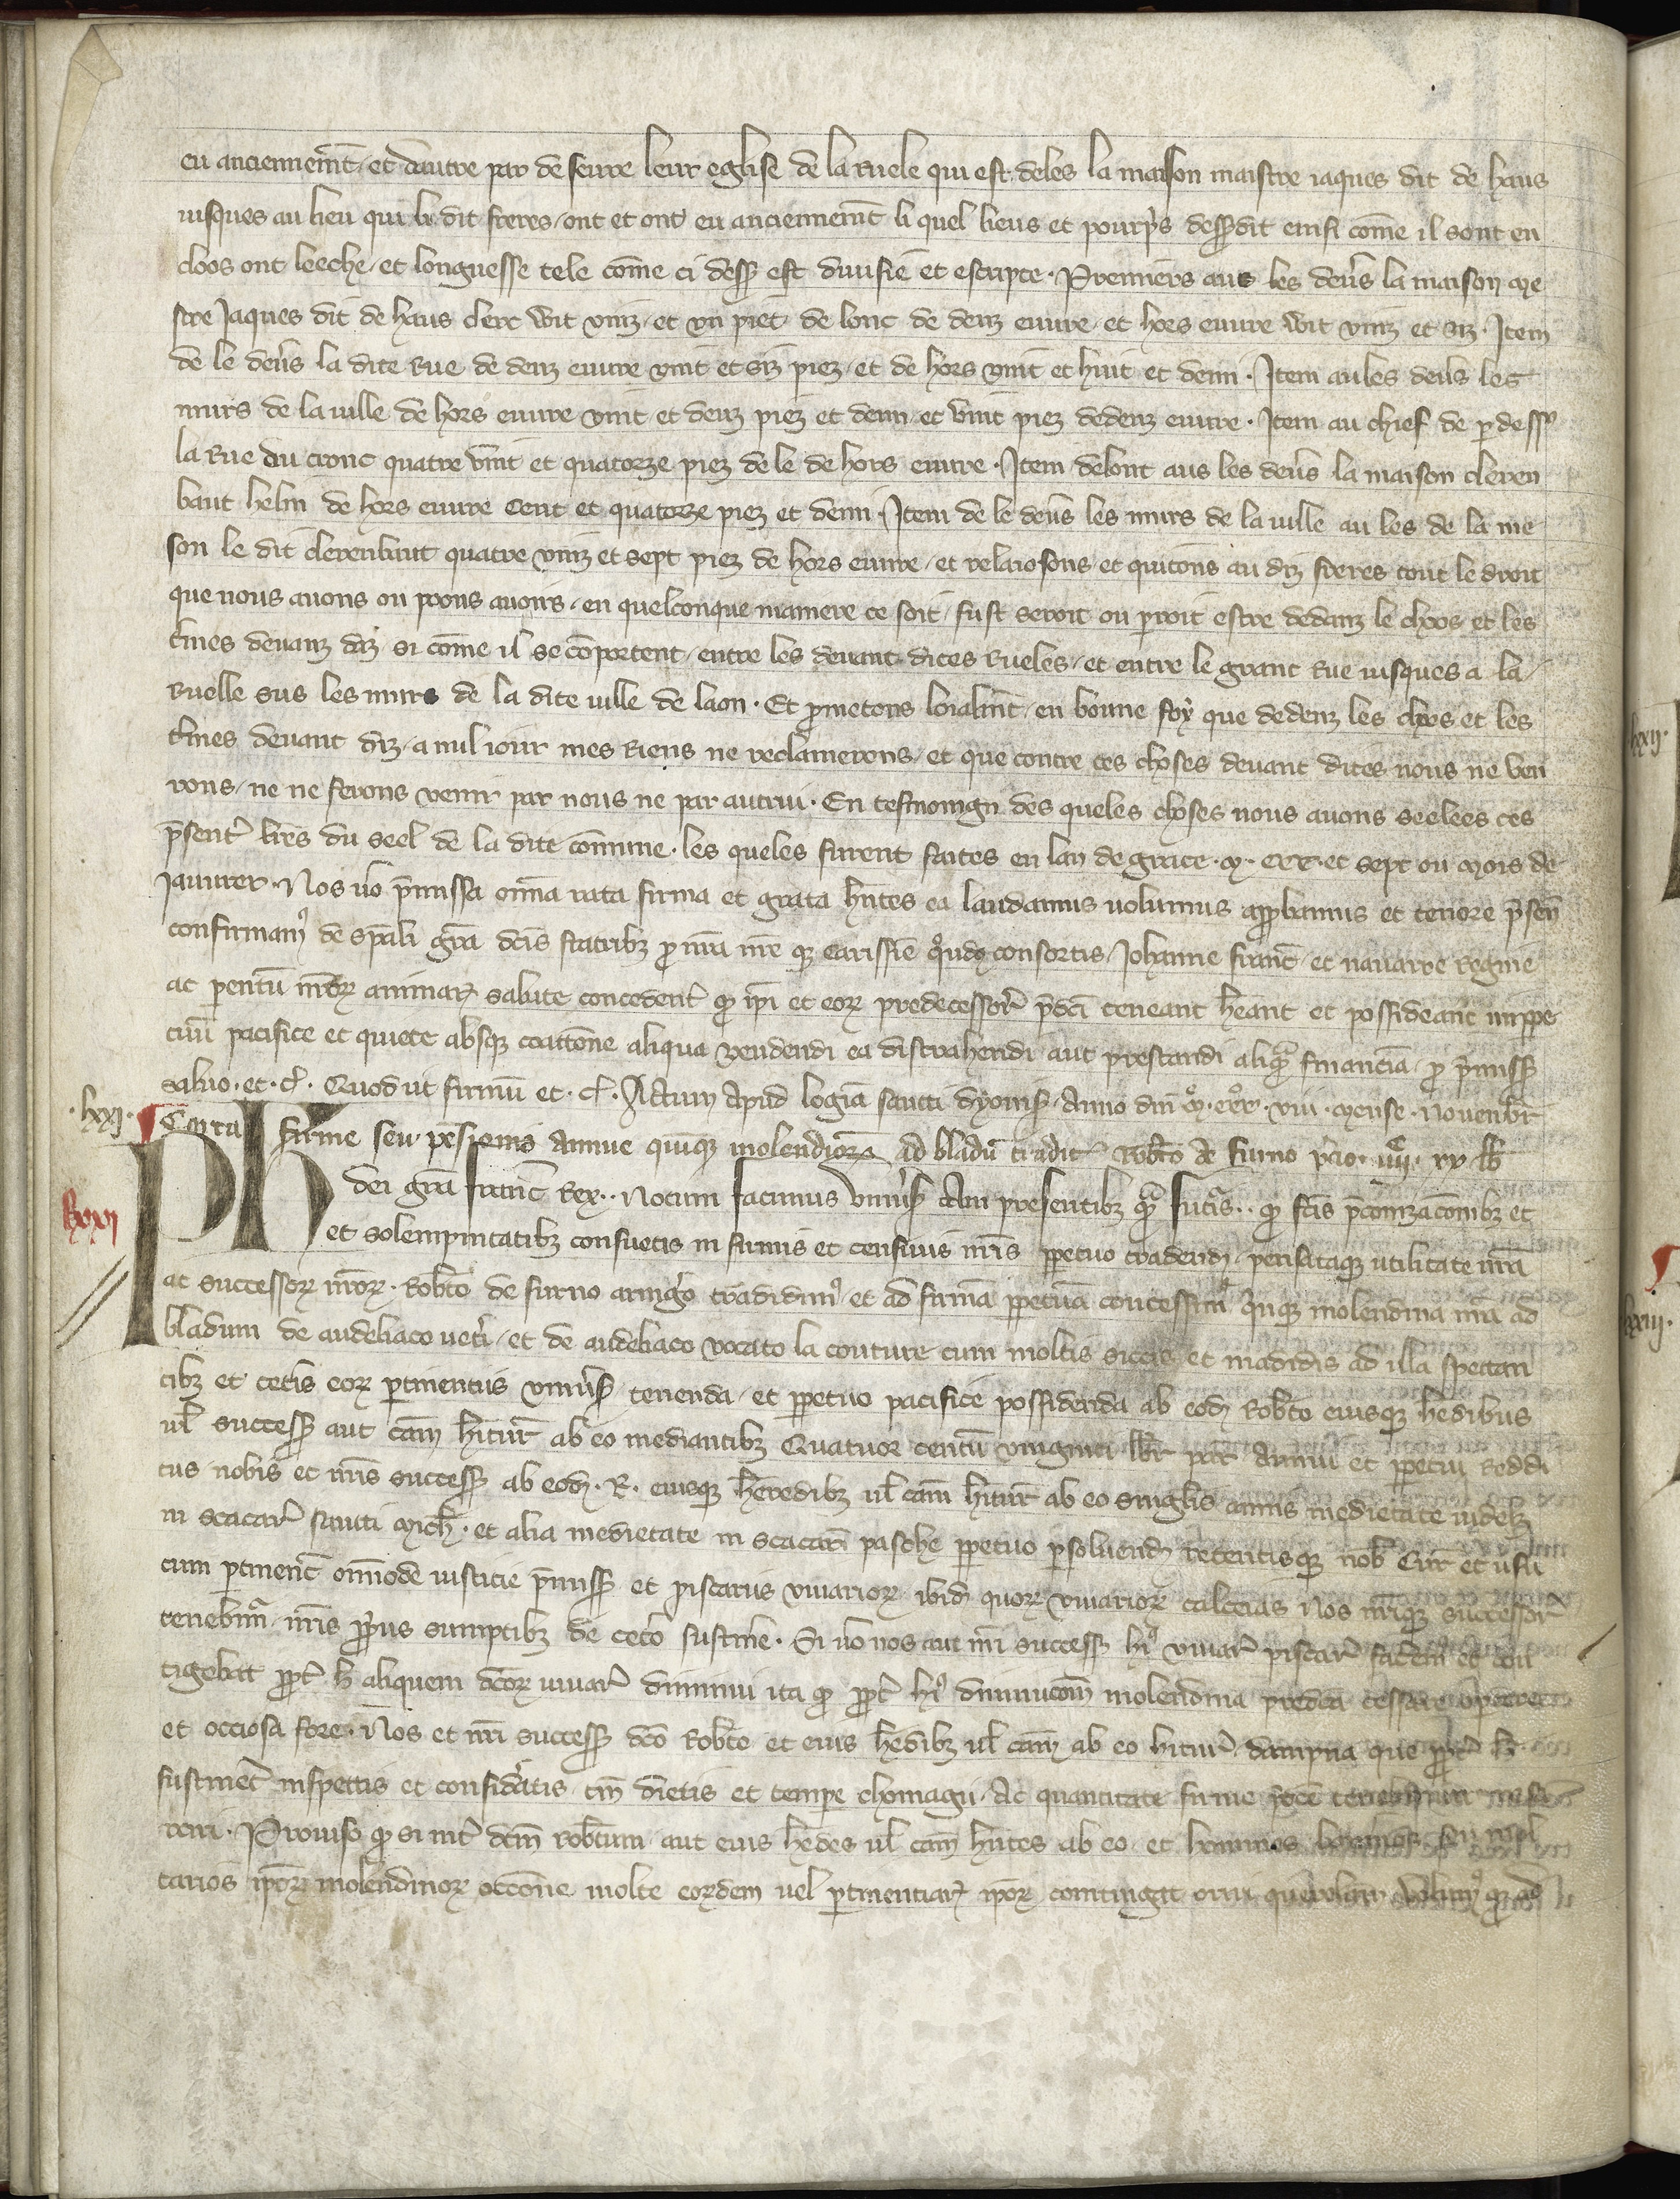 eu anciennemēt / et dautre par de seure leur eglise de la ruele qui est deles la maison maistre iaques dit de haus
iusques au lieu qui li dit freres / ont et ont eu anciennemēt li quel lieus et pourpˢs dess9dit einsi cōme il sont en
cloos ont leeche / et longuesse tele cōme ci dess9 est diuisie et escripte . Premiers aus les deūs la maison me
stre Jaques dit de haus clerc wit vinz / et vn piet de lonc de denz euure / et hors euure wit vinz et siz . Item
de le deūs la dite rue de denz euure vint et siz piez / et de hors vint et huit et demi . Item aules deūs les
murs de la uille de hors euure vint et deuz piez et demi / et vīnt piez dedenz euure . Item au chief de p dess9
la rue du cronc quatre vīnt et quatorze piez de le de hors euure . Item delont aus les deūs la maison cleren
baut helin de hors euure Cent et quatorze piez et demi . Item de le deūs les murs de la uille au les de la me
son le dit clerenbaut quatre vinz et sept piez de hors euure / et relaissons et quitons au diz freres tout le droit
que nous auons ou poons auoirs / en quelconque maniere ce soit / fust seroit ou porroit estre dedanz le cloos et les
t̄mes deuanz diz si cōme il se cōportent / entre les deuant dites rueles / et entre le grant rue iusques a la
ruelle sus les murs de la dite uille de laon . Et pmetons loialmt̄ / en bonne foy que dedenz les cloos et les
t̄mes deuant diz / a nul iour mes riens ne reclamerons / et que contre ces choses deuant dites nous ne ven
rons / ne ne ferons venir par nous ne par autrui . En tesmoingn des queles choses nous auons seelees ces
p̄sent̄ lr̄es du seel de la dite cōmune . les queles furent faites en lan de grace . M . CCC . et sept ou mois de
Januier . Nos ūo p̄missa om̄ia rata firma et grata hn̄tes ea laudamus uolumus app̄bamus et tenore p̄sen̄
confirmam9 de sp̄ali gr̄a dc̄is fratribz p nr̄a nr̄e qz carissīe q̄ndaz consortis / Johanne franc̄ / et nauarre regine
ac pentū nr̄oꝝ animaꝝ salute concedent̄ qd ip̄i et eoꝝ predecessor̄ p̄dc̄i teneant hēant et possideant imppe
tuū pacifice et quiete absqz coactōne aliqua vendendi ea distrahendi aut prestandi aliqᵃm financiā / p p̄miss
saluo . et . c̄ . Quod ut firmū et . c̄ . Actum apud logiā sancti dyonis̄ . Anno dn̄i Mº . CCCº . viii . mense . Nouenbr̄
. lxxi . ¶ Carta firme seu pēsionis annue quinqz molendinoꝝ ad bladū tradit̄ Rob̄to de furno p̄cio . iiiiᶜ . xx . lb̄
Rxxi Ph dei gr̄a franc̄ Rex . . Notum facimus vniūs̄ tam presentibz qᵃm futᵃis . . qd fc̄is p̄conizac̄onibz et
et solempnitatibz consuetis in firmis et censiuis nr̄is ppetuo tradendis / pensataqz utilitate nr̄a
ac successoꝝ nr̄oꝝ . Rob̄to de furno armigo tradidim9 et ad firmā ppetuā concessim9 quinqz molendina nr̄a ad
bladum de andeliaco uet̄i / et de andeliaco vocato la couture cum moltis siccis et madidis ad illa spectan
tibz et cet̄is eoꝝ ptinentiis vniūs̄ / tenenda / et ppetuo pacifice possidenda ab eodz Rob̄to eiusqz h̄edibus
ul̄ success̄ aut cām hītur̄ ab eo mediantibz Quatuor centū viginti lb̄r par̄ annui et ppetui reddi
tus nobis et nr̄is success̄ ab eodz . R . eiusqz heredibz ul̄ cām hītur̄ ab eo singlis annis medietate uidelz
in scacar̄ sancti Mich̄ . et alia medietate in scacar̄ pasche ppetuo psoluendz retentisqz nob̄ Cur̄ et usu
cum ptinenc̄ om̄imode iusticie p̄miss̄ et piscariis viuarioꝝ ibidz quoꝝ viuarioꝝ calceias Nos nr̄iqz successor̄
tenebimᵃ nr̄is pp̄riis sumptibz de ceto sustine . Si ūo nos aut nr̄i success̄ hi9 viuar̄ piscar̄ facem9 et con
tigebat ppt̄ h̄ aliquem dc̄oꝝ viuar̄ diminui ita qd ppt̄ hi9 diminucōm molendina predca cessare
et occiosa fore . Nos et nr̄i success̄ dc̄o Rob̄to et eius h̄edibz ul̄ cām ab eo hitur̄ dampna que ppt̄ h̄
sustinet̄ inspectis et considatis / tm̄ dietis et tempe chomagii . Ac quantitate firme p̄dc̄e tenebimur
rciri . Prouiso qd si int̄ dc̄m Rob̄tum aut eius h̄edes ul̄ cām hn̄tes ab eo / et homines seu mol
tarios ip̄oꝝ molendinoꝝ occōne molte eoꝝdem uel ptinentiaꝝ ip̄oꝝ contingit oriri querelam Volum9 qd
lxxii .
lxxiii .